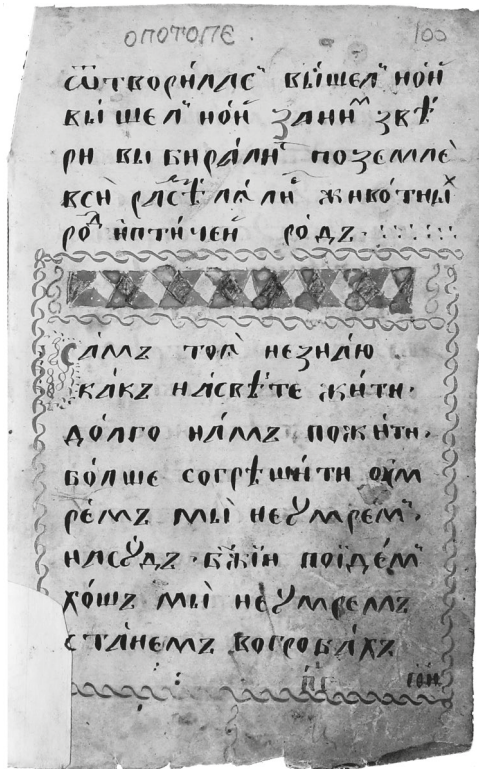 ОПОТОПЕ. 100
ѿтвори́лас вы́шел но́й
вы́шел но́й зани́м звѣ́
ри вы бира́ли поземлѐ
вси̂ расѣ́ѧли живо́тныⷯ
роⷣ иптѝчеи ро́дъ
Са́мъ тогѡ̀ незна́ю
ка́къ насвѣ́те жи́ти·
до́лго на́мъ пожи́ти·
бо́лше согрѣши́ти оум
ре́мъ мы̀ неꙋмрем·
насꙋ́дъ · бж҃іи поіде́м
хо́шъ мы̀ неꙋмремъ
ста́немъ вогроба́хъ